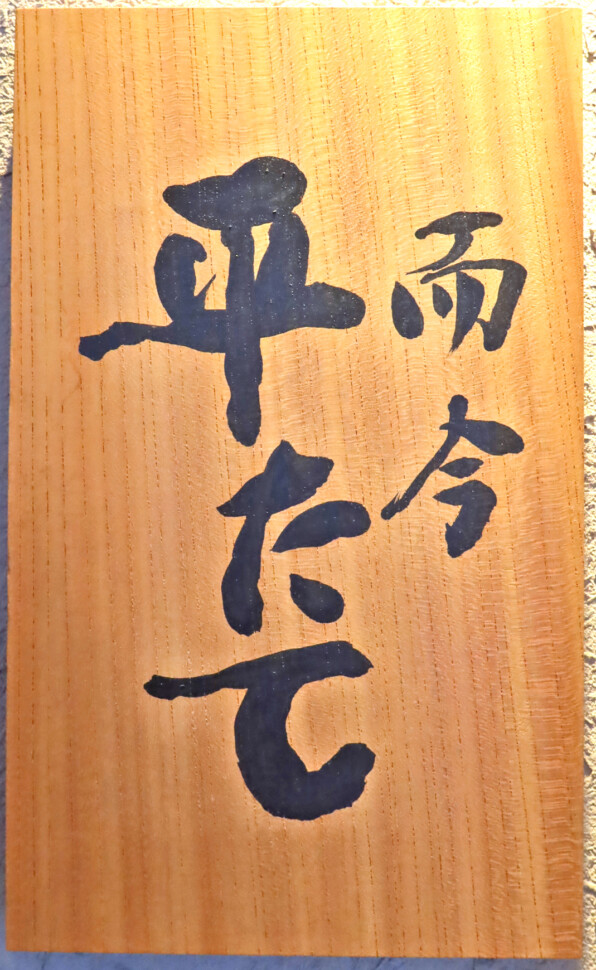 而今
平たて